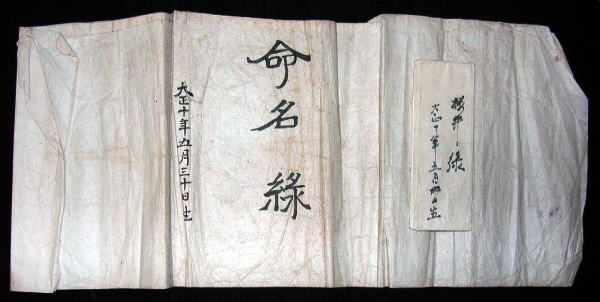 櫻井 緑
大正十年五月卅日生
命名 緑
大正十年五月三十日生